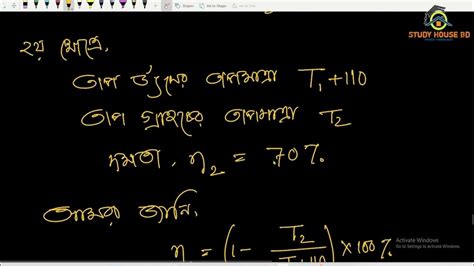 STUDY HOUSE BD
২য় ক্ষেত্রে,
তাপ উৎসের তাপমাত্রা T₁+110
তাপ গ্রাহকের তাপমাত্রা T₂
দক্ষতা, η₂ = 70%
আমরা জানি,
η = (1 - T₂ / T₁+110) × 100%
Activate Windows
Go to Settings to activate Windows.